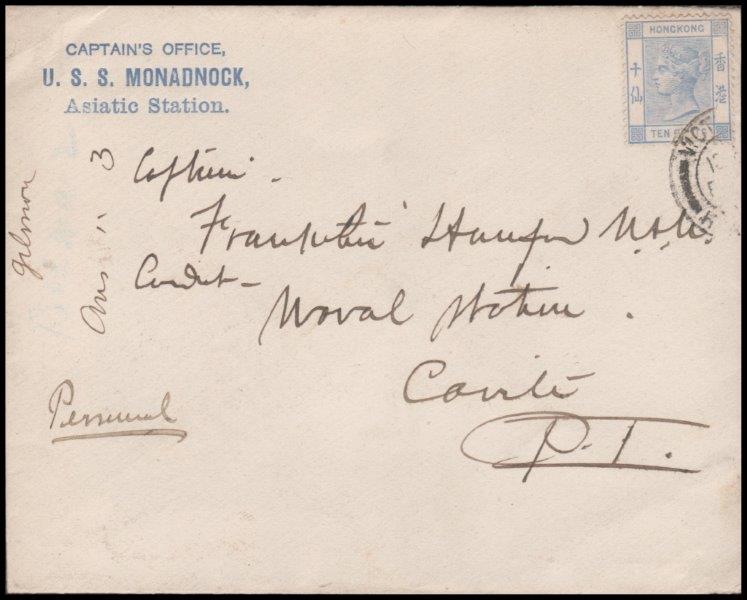 CAPTAIN'S OFFICE,
U. S. S. MONADNOCK,
Asiatic Station.
HONGKONG
十仙
香港
TEN
VICT
Captain
Franklin Hanford USN
Comdt
Naval Station
Cavite
P. I.
Personal
Ans 3